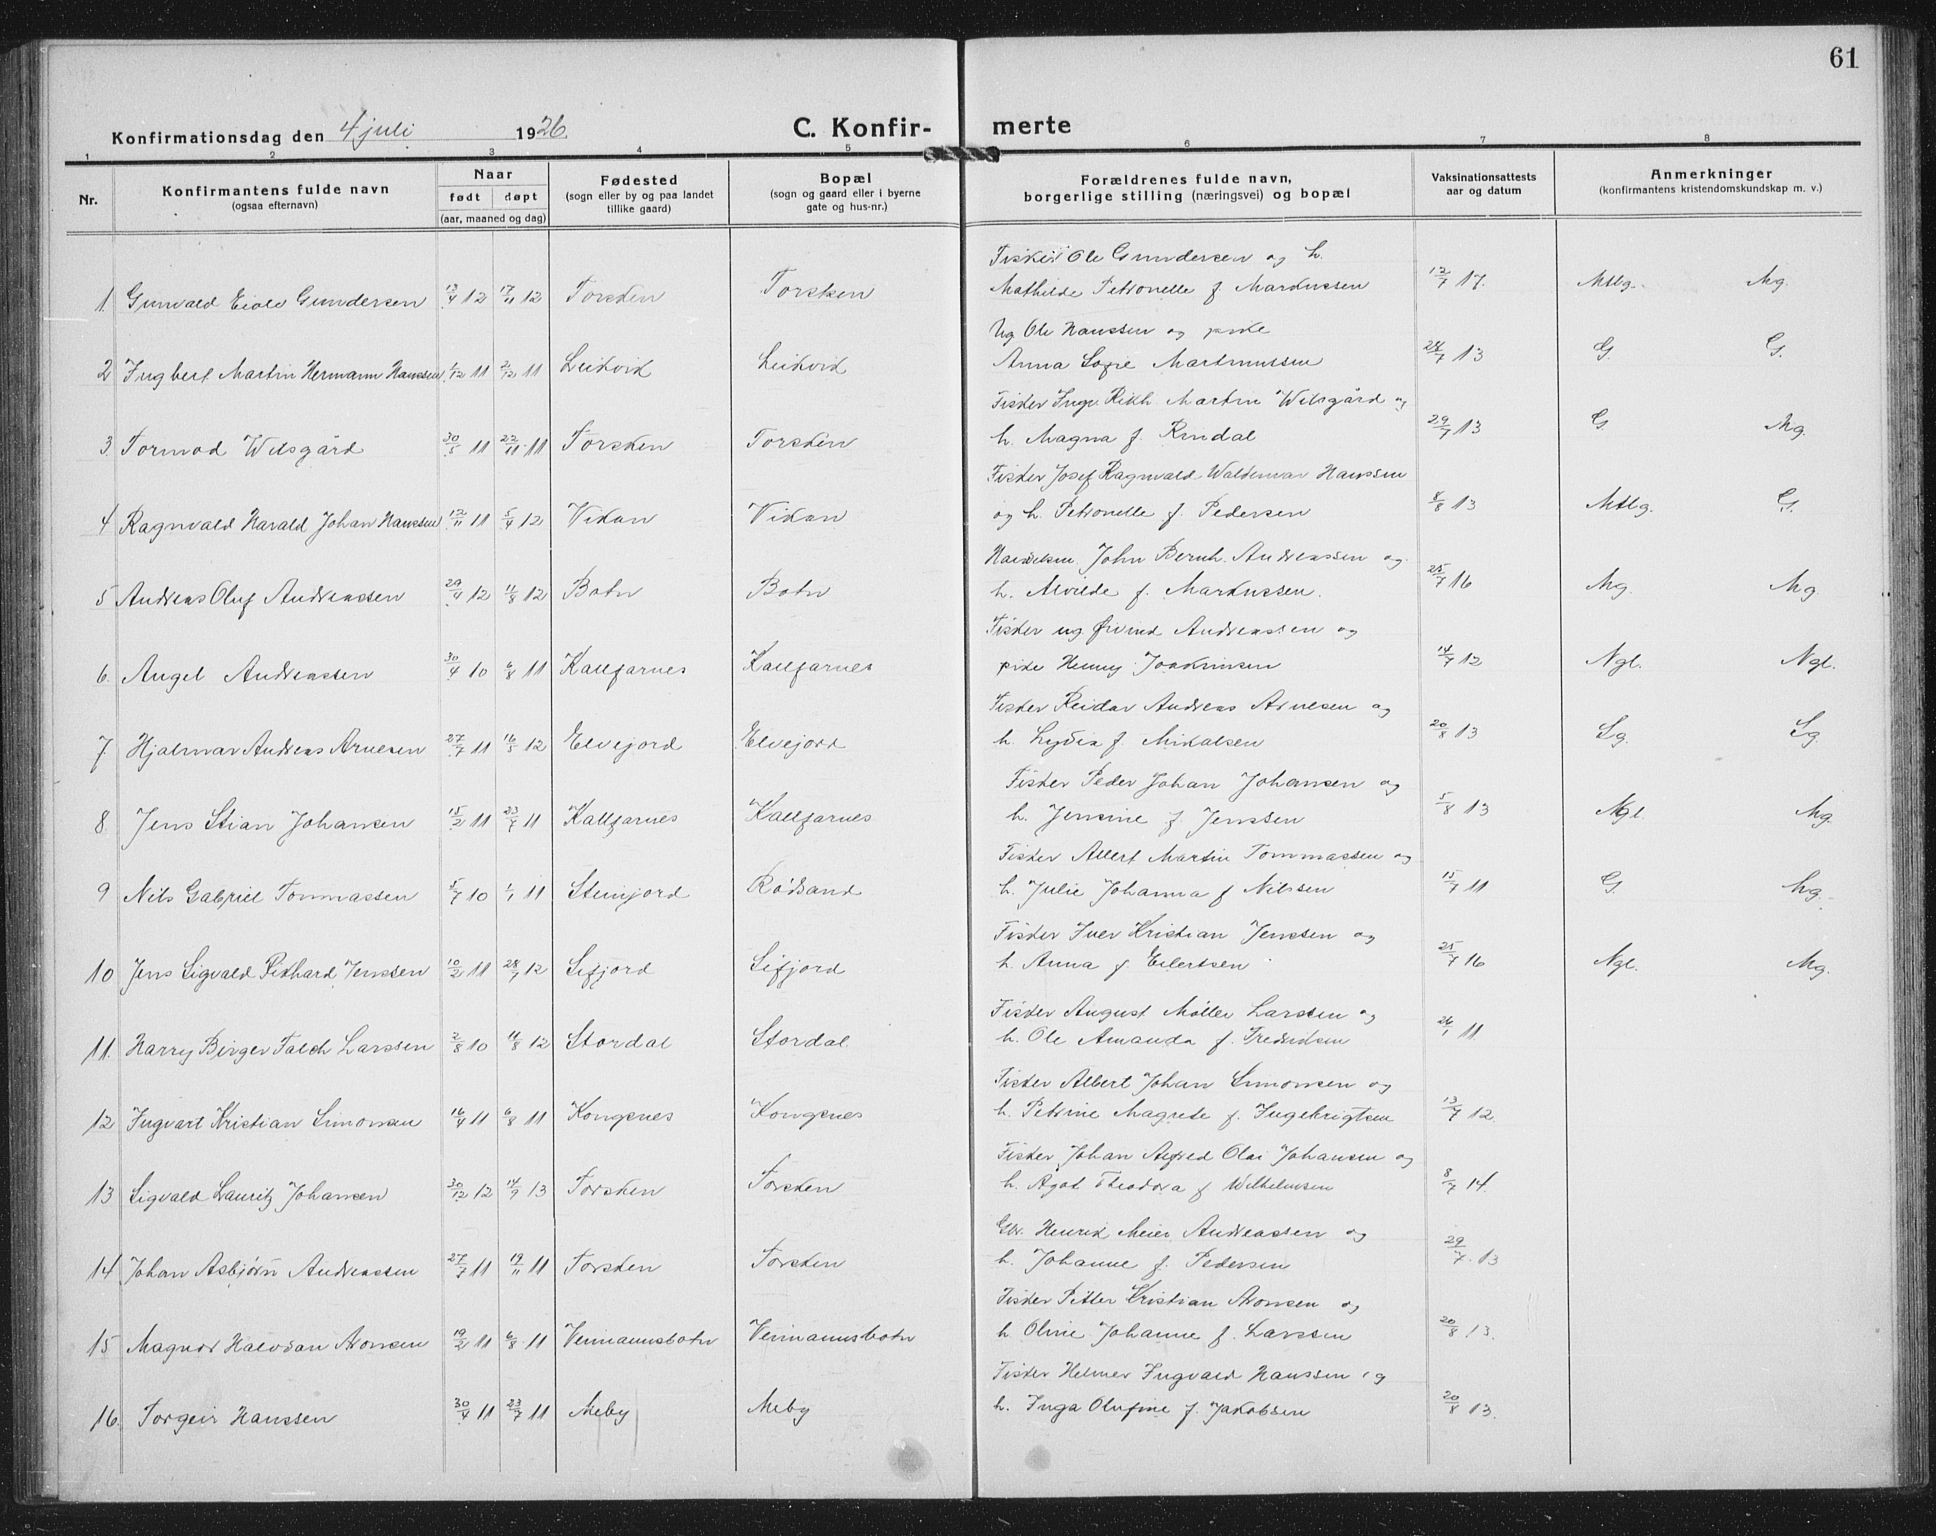 61
Konfirmationsdag den 4 juli 1926
C. Konfir- merte
1 2 3 4 5 6 7 8
Nr.
Konfirmantens fulde navn
(ogsaa efternavn)
Naar
født døpt
(aar, maaned og dag)
Fødested
(sogn eller by og paa landet
tillike gaard)
Bopæl
(sogn og gaard eller i byerne
gate og hus-nr.)
Forældrenes fulde navn,
borgerlige stilling (næringsvei) og bopæl
Vaksinationsattests
aar og datum
Anmerkninger
(konfirmantens kristendomskundskap m. v.)
Fisker Ole Gundersen og h.
1. Gunvald Eiole Gundersen 13/4 12 17/11 12 Torsken Torsken Mathilde Petronelle f. Markussen 12/7 17. Mtlg. Mg.
Ug Ole Hanssen og pike
2 Ingbert Martin Hermann Hanssen 1/12 11 2/12 11 Leikvik Leikvik Anna Sofie Martinussen 24/7 13 G. G.
Fisker Ingv. Rikh. Martin Wilsgård og
3. Tormod Wilsgård 30/5 11 22/11 11 Torsken Torsken h. Magna f. Rindal 29/7 13 G. Mg.
Fisker Josef Ragnvald Waldemar Hanssen
4 Ragnvald Harald Johan Hanssen 12/11 11 5/4 12 Vikan Vikan og h. Petronelle f. Pedersen 8/8 13 Mtlg. G.
Handelsm. John Bernh. Andreassen og
5 Andreas Oluf Andreassen 29/4 12 11/8 12 Botn Botn h. Alvilde f. Markussen. 25/7 16 Mg. Mg.
Fisker ug Øivind Andreassen og
6. Angel Andreassen 30/4 10 6/8 11 Kalfarnes Kalfarnes pike Henny Joakimsen 14/7 12 Ngl. Ngl.
Fisker Reidar Andreas Arnesen og
7 Hjalmar Andreas Arnesen 27/7 11 16/5 12 Elvejord Elvejord h. Lydia f. Mikalsen 20/8 13 Sg. Sg.
Fisker Peder Johan Johansen og
8. Jens Stian Johansen 15/2 11 23/7 11 Kalfarnes Kalfarnes h. Jensine f Jenssen 5/8 13 Ngl. Mg.
Fisker Albert Martin Tommassen og
9 Nils Gabriel Tommassen 5/7 10 1/1 11 Steinfjord Rødsand h. Julie Johanna f Nilssen 15/7 11 G. Mg.
Fisker Iver Kristian Jenssen og
10 Jens Sigvald Rikhard Jenssen 10/2 11 28/7 12 Sifjord Sifjord h. Anna f. Eilertsen 25/7 16 Ngl. Mg.
Fisker August Møller Larssen og
11. Harry Birger Falch Larssen 2/8 10 11/8 12 Stordal Stordal h. Ole Amanda f. Fredriksen 26/1 11
Fisker Albert Johan Simonsen og
12 Ingvart Kristian Simonsen 16/4 11 6/8 11 Kongsnes Kongsnes h. Petrine Magrete f. Ingebrigtsen 13/7 12.
Fisker Johan Alfred Olai Johansen og
13 Sigvald Lauritz Johansen 30/12 12 14/9 13 Torsken Torsken h. Ågot Theodora f Wilhelmsen 8/7 14.
Gbr. Henrik Meier Andreassen og
14 Johan Asbjørn Andreassen 27/7 11 19/11 11 Torsken Torsken h. Johanne f. Pedersen 29/7 13
Fisker Petter Kristian Aronsen og
15 Magnor Halvdan Aronsen 19/2 11 6/8 11 Veimannsbotn Veimannsbotn h Oline Johanne f. Larssen 20/8 13.
Fisker Helmer Ingvald Hanssen og
16. Torgeir Hanssen 30/4 11 23/7 11 Meby Meby h. Inga Olufine f. Jakobsen 20/8 13.